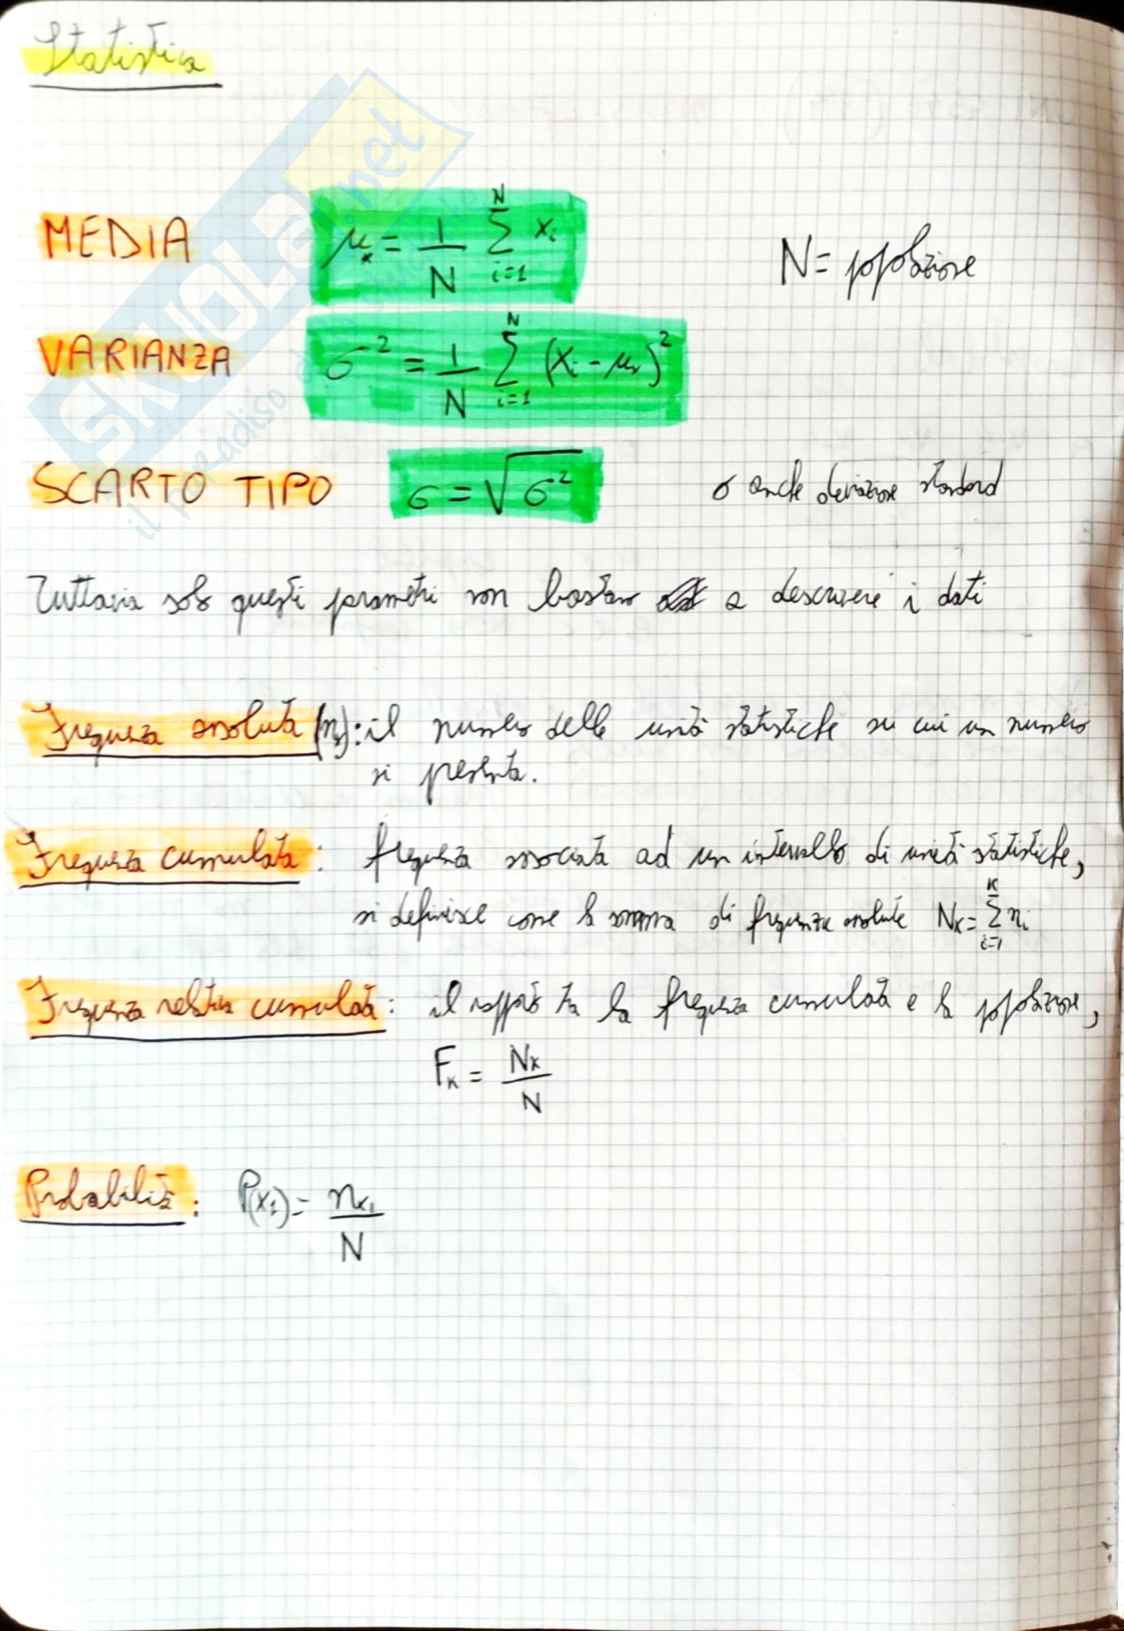 Statistica
MEDIA μₓ = 1/N ∑_{i=1}^{N} xᵢ N = popolazione
VARIANZA σ² = 1/N ∑_{i=1}^{N} (xᵢ - μₓ)²
SCARTO TIPO σ = √σ² o anche deviazione standard
Tuttavia solo questi parametri non bastano a descrivere i dati
Frequenza assoluta (nₖ): il numero delle unità statistiche su cui un numero
si presenta.
Frequenza cumulata: frequenza associata ad un intervallo di unità statistiche,
si definisce come la somma di frequenze assolute Nₖ = ∑_{i=1}^{K} nᵢ
Frequenza relativa cumulata: il rapporto tra la frequenza cumulata e la popolazione,
Fₖ = Nₖ/N
Probabilità: P(x₁) = n_{x₁}/N
SKUOLA.net
il paradiso